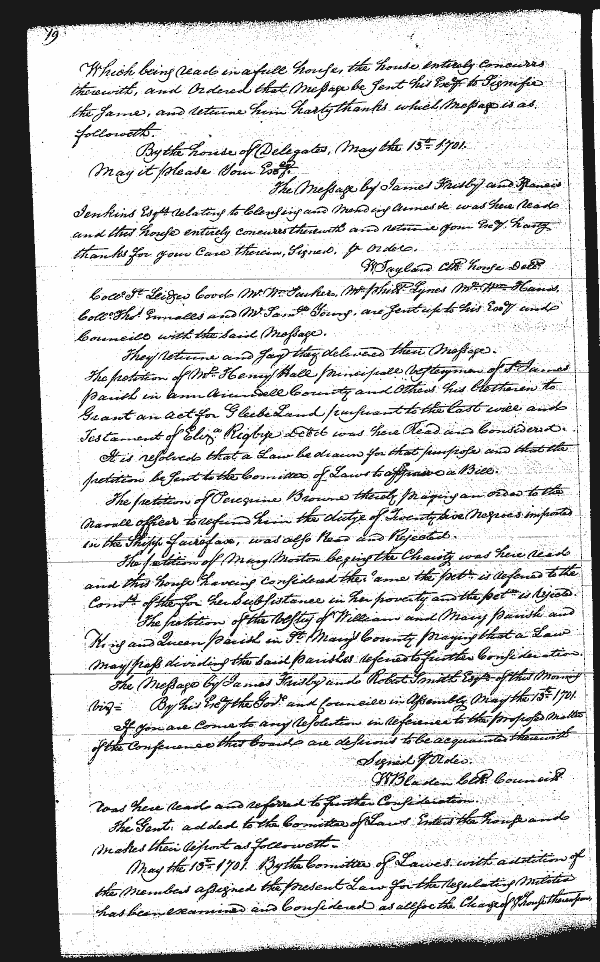 19
Which being read in a full house, the house entirely concurrs
therewith, and Ordered that Message be sent his Exy to Signifie
the same, and returne him harty thanks which Message is as
followeth.
By the house of Delegates, May the 13th 1701.
May it please Your Excy.
The Message by James Frisby and Francis
Jenkins Esqrs relating to Clensing and Mending Armes &c was here read
and this house entirely concurrs therewith and returne your Exy harty
thanks for your Care therein, Signed, p Order.
W Taylard Clk house Delts
Collo St Leidger Codd Mr Wm
Collo Thos Ennalls and Mr Saml Young, are sent up to his Exy and
Councill with the said Message.
They returne and say they delivered their Message.
The petition of Mr Henry Hall principall Vestryman of St James
parish in ann Arundell County and others his Bretheren to
Grant an act for Gleebe Land pursuant to the Last will and
Testament of Eliza Rigbye was here Read and Considered.
It is resolved that a Law be drawn for that purpose and that the
petition be sent to the Comittee of Laws to a Bill.
The petition of Peregrine Browne praying an order to the
navall officer to refund him the dutye of Twenty five Negroes imported
in the Shipp Fairefax, was also Read and Rejected.
The petition of Mary Morton beging the Charity was here read
and this house haveing considered the same the petn is referred to the
for her Subsistance in her poverty and the petn is rejected.
The petition of the Vestry of William and Mary parish and
King and Queen parish in St Marys County praying that a Law
may pass dividing the said parishes referred to further Consideration.
The Message by James Frisby and Robert Smith Esqrs of this Morning
vizt By his Exy the Govr and Councill in Assembly May the 13th 1701.
If you are come to any resolution in reference to the proposed matter
of the Conference this board are desirous to be acquainted therewith
Signed p Order.
W Bladen Clk Council
was here read and referred to further Consideration.
The Gent. added to the Comittee of Laws Enters the house and
makes their report as followeth.
May the 13th 1701. By the Comittee of Lawes with addition of
the members assigned the present Law for the regulating Militia
has been examined and Considered as also the Charge of